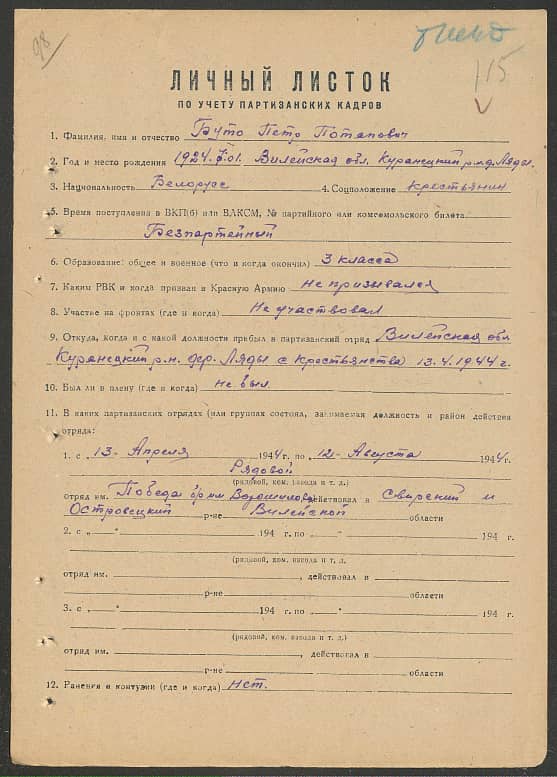 98
115
ЛИЧНЫЙ ЛИСТОК
ПО УЧЕТУ ПАРТИЗАНСКИХ КАДРОВ
1. Фамилия, имя и отчество Буто Петр Потапович
2. Год и место рождения 1924. Вилейская обл. Куранецкий р.н.д. Ляды.
3. Национальность Белорусс 4. Соцположение крестьянин
5. Время поступления в ВКП(б) или ВЛКСМ, № партийного или комсомольского билета
Безпартейный
6. Образование: общее и военное (что и когда окончил) 3 класса
7. Каким РВК и когда призван в Красную Армию не призывался
8. Участие на фронтах (где и когда) Не участвовал
9. Откуда, когда и с какой должности прибыл в партизанский отряд Вилейская обл
Куранецкий р.н. дер. Ляды с крестьянства 13.4.1944 г.
10. Был ли в плену (где и когда) не был
11. В каких партизанских отрядах (или группах состоял, занимаемая должность и район действия
отряда:
1. с „13" Апреля 1944 г. по „12" Августа 1944 г.
Рядовой
(рядовой, ком. взвода и т. д.)
отряд им. Победа бр им Ворошилова действовал в Свирский и
Островецкий р-не Вилейской области
2. с „ " 194 г. по „ " 194 г.
(рядовой, ком. взвода и т. д.)
отряд им. , действовал в
р-не области
3. с „ " 194 г. по „ " 194 г.
(рядовой, ком. взвода и т. д.)
отряд им. , действовал в
р-не области
12. Ранения и контузии (где и когда) нет.